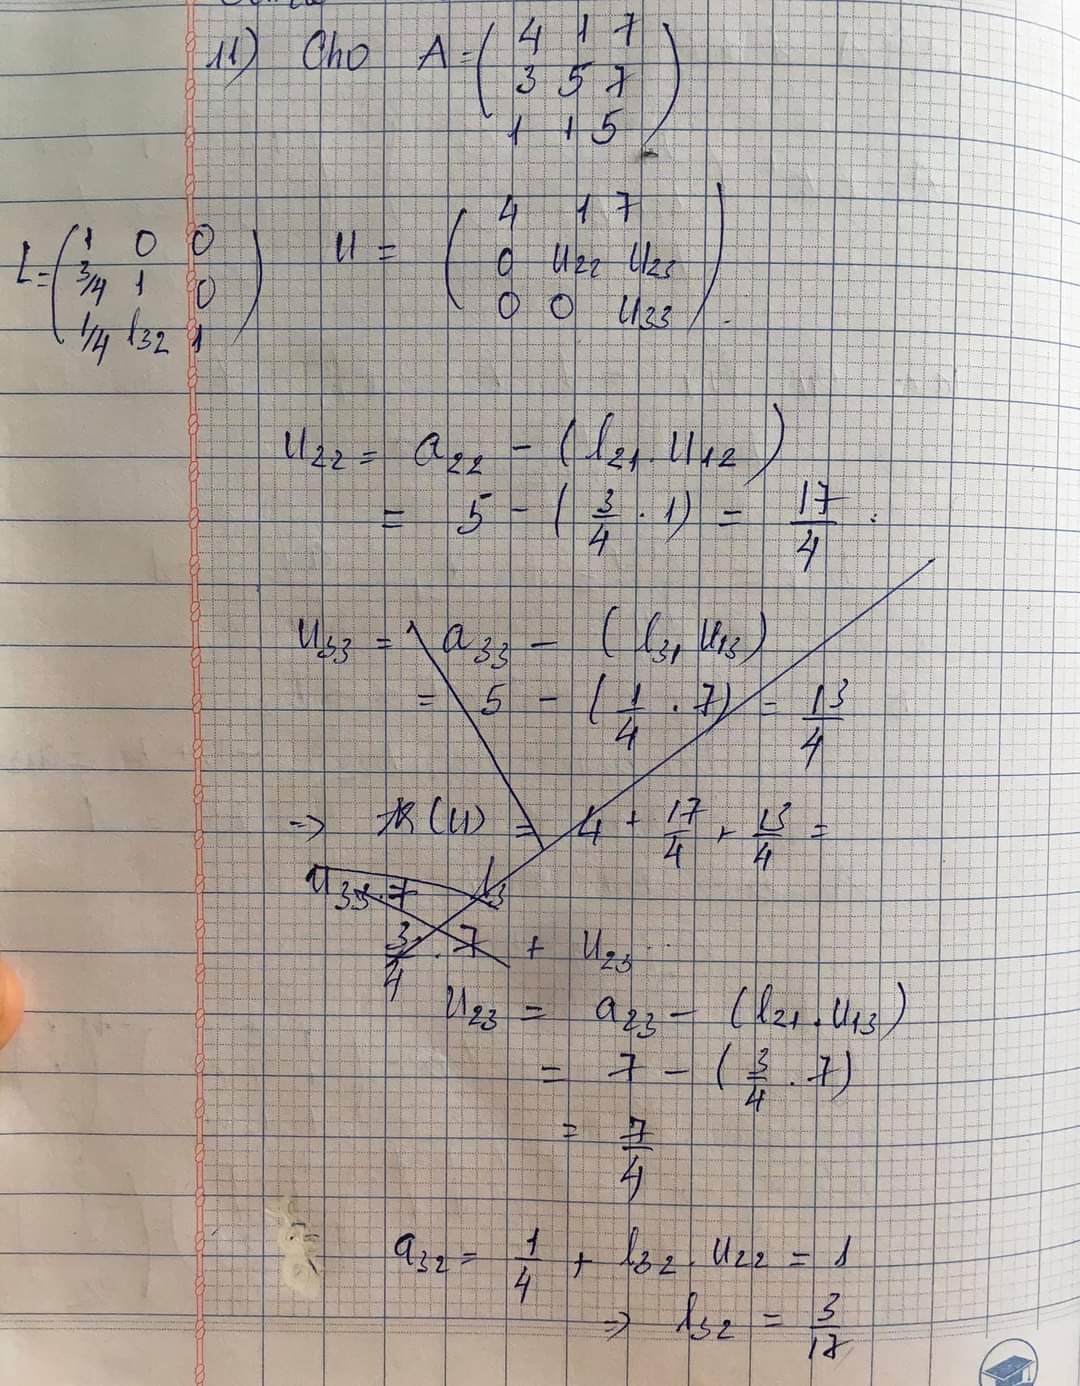 11) Cho A = ( 4 1 7
3 5 7
1 1 5 )
L = ( 1 0 0
3/4 1 0
1/4 l32 1 )
U = ( 4 1 7
0 U22 U23
0 0 U33 ).
U22 = a22 - (l21 . U12)
= 5 - (3/4 . 1) = 17/4 :
U33 = a33 - (l31 U13)
= 5 - (1/4 . 7) = 13/4
=> (U) = 4 + 17/4 + 13/4 =
U33 . 7
3/4 . 7 + U23
U23 = a23 - (l21 . U13)
= 7 - (3/4 . 7)
= 7/4
a32 = 1/4 + l32 . U22 = 1
=> l32 = 3/17